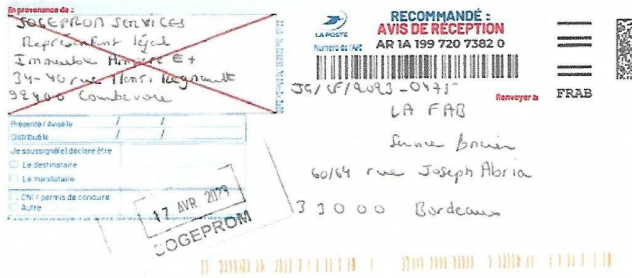 En provenance de :
SOGEPROM SERVICES
Représentant légal
Immeuble Ampère E+
34-40 rue Henri Regnault
92400 Courbevoie
Présenté / Avisé le / /
Distribué le / /
Je soussigné(e) déclare être
Le destinataire
Le mandataire
CNI / permis de conduire
Autre
17 AVR. 2023
SOGEPROM
LA POSTE
RECOMMANDÉ :
AVIS DE RÉCEPTION
Numéro de l'AR : AR 1A 199 720 7382 0
Renvoyer à
FRAB
JG/CF/2023-0475
LA FAB
Service foncier
60/64 rue Joseph Abria
33000 Bordeaux